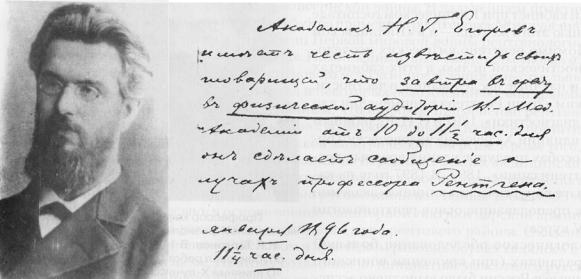 Академикъ Н. Г. Егоровъ
имѣетъ честь извѣстить своихъ
товарищей, что завтра въ среду
въ физической аудиторіи В.-Мед.
Академіи отъ 10 до 11½ час. дня
онъ сдѣлаетъ сообщеніе о
лучахъ профессора Рентгена.
января 1896 года.
11¼ час. дня.